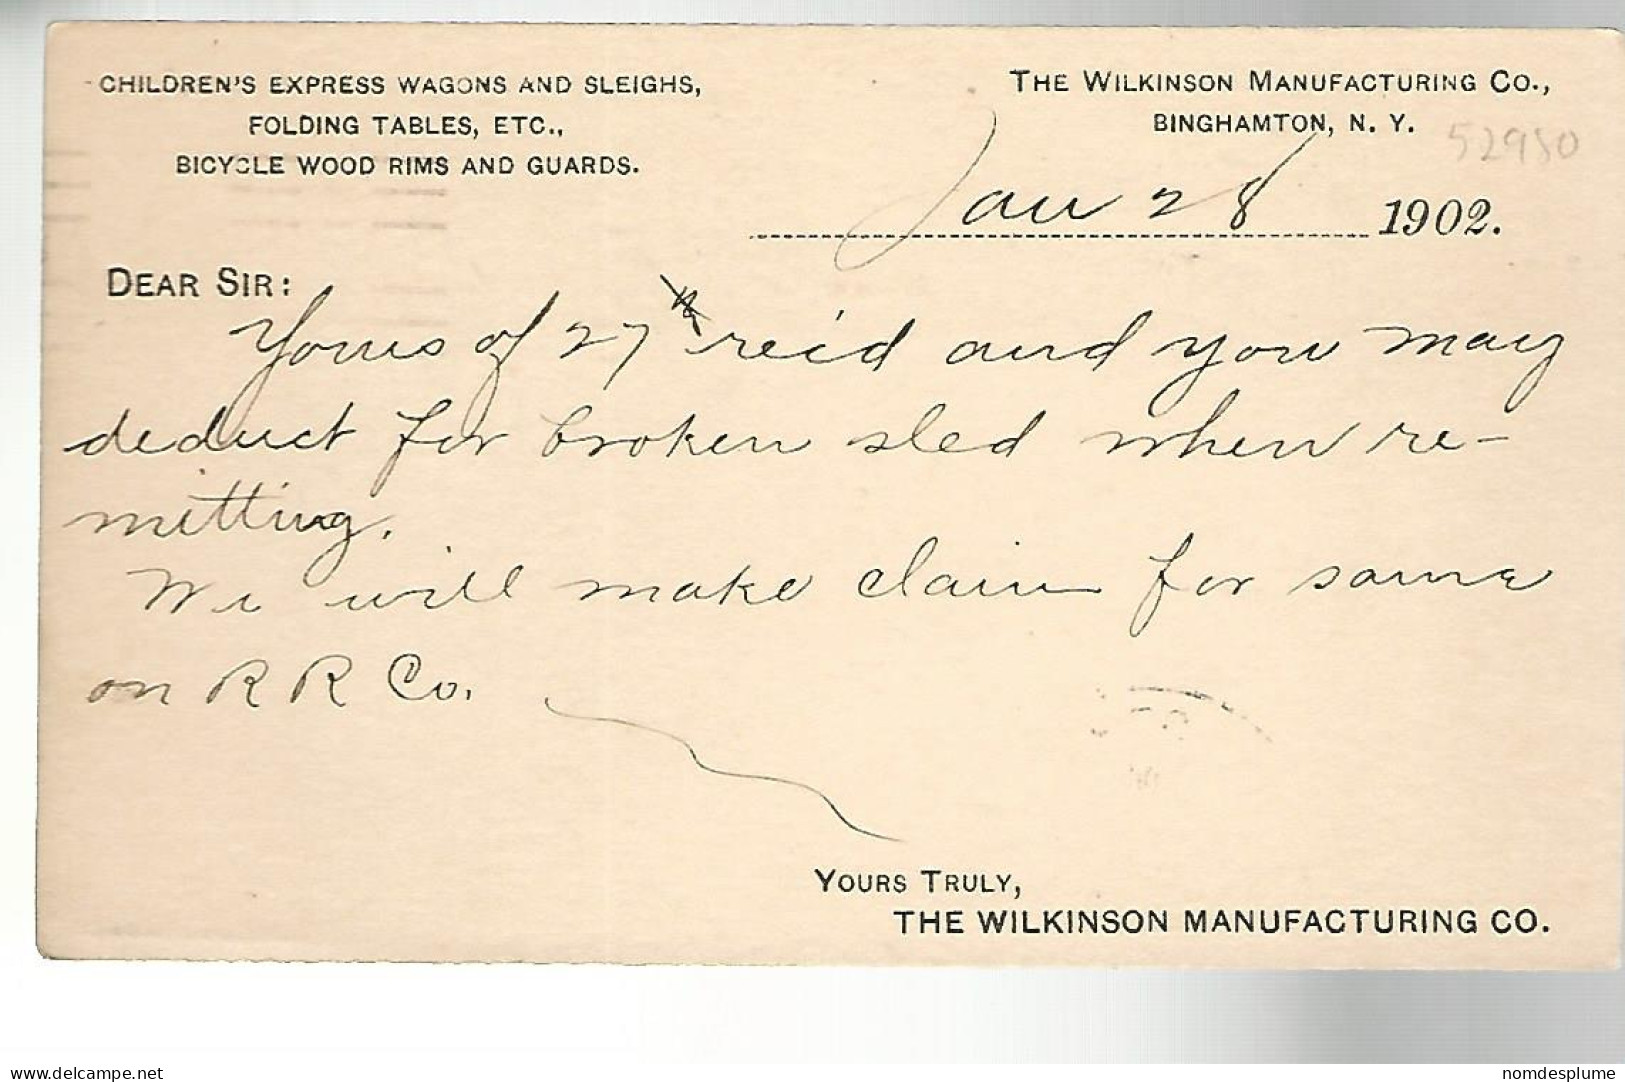 CHILDREN'S EXPRESS WAGONS AND SLEIGHS,
FOLDING TABLES, ETC.,
BICYCLE WOOD RIMS AND GUARDS.
THE WILKINSON MANUFACTURING CO.,
BINGHAMTON, N. Y.
52980
Jan 28 1902.
DEAR SIR:
Yours of 27th rec'd and you may
deduct for broken sled when re-
mitting.
We will make claim for same
on R R Co.
YOURS TRULY,
THE WILKINSON MANUFACTURING CO.
www.delcampe.net
nomdesplume